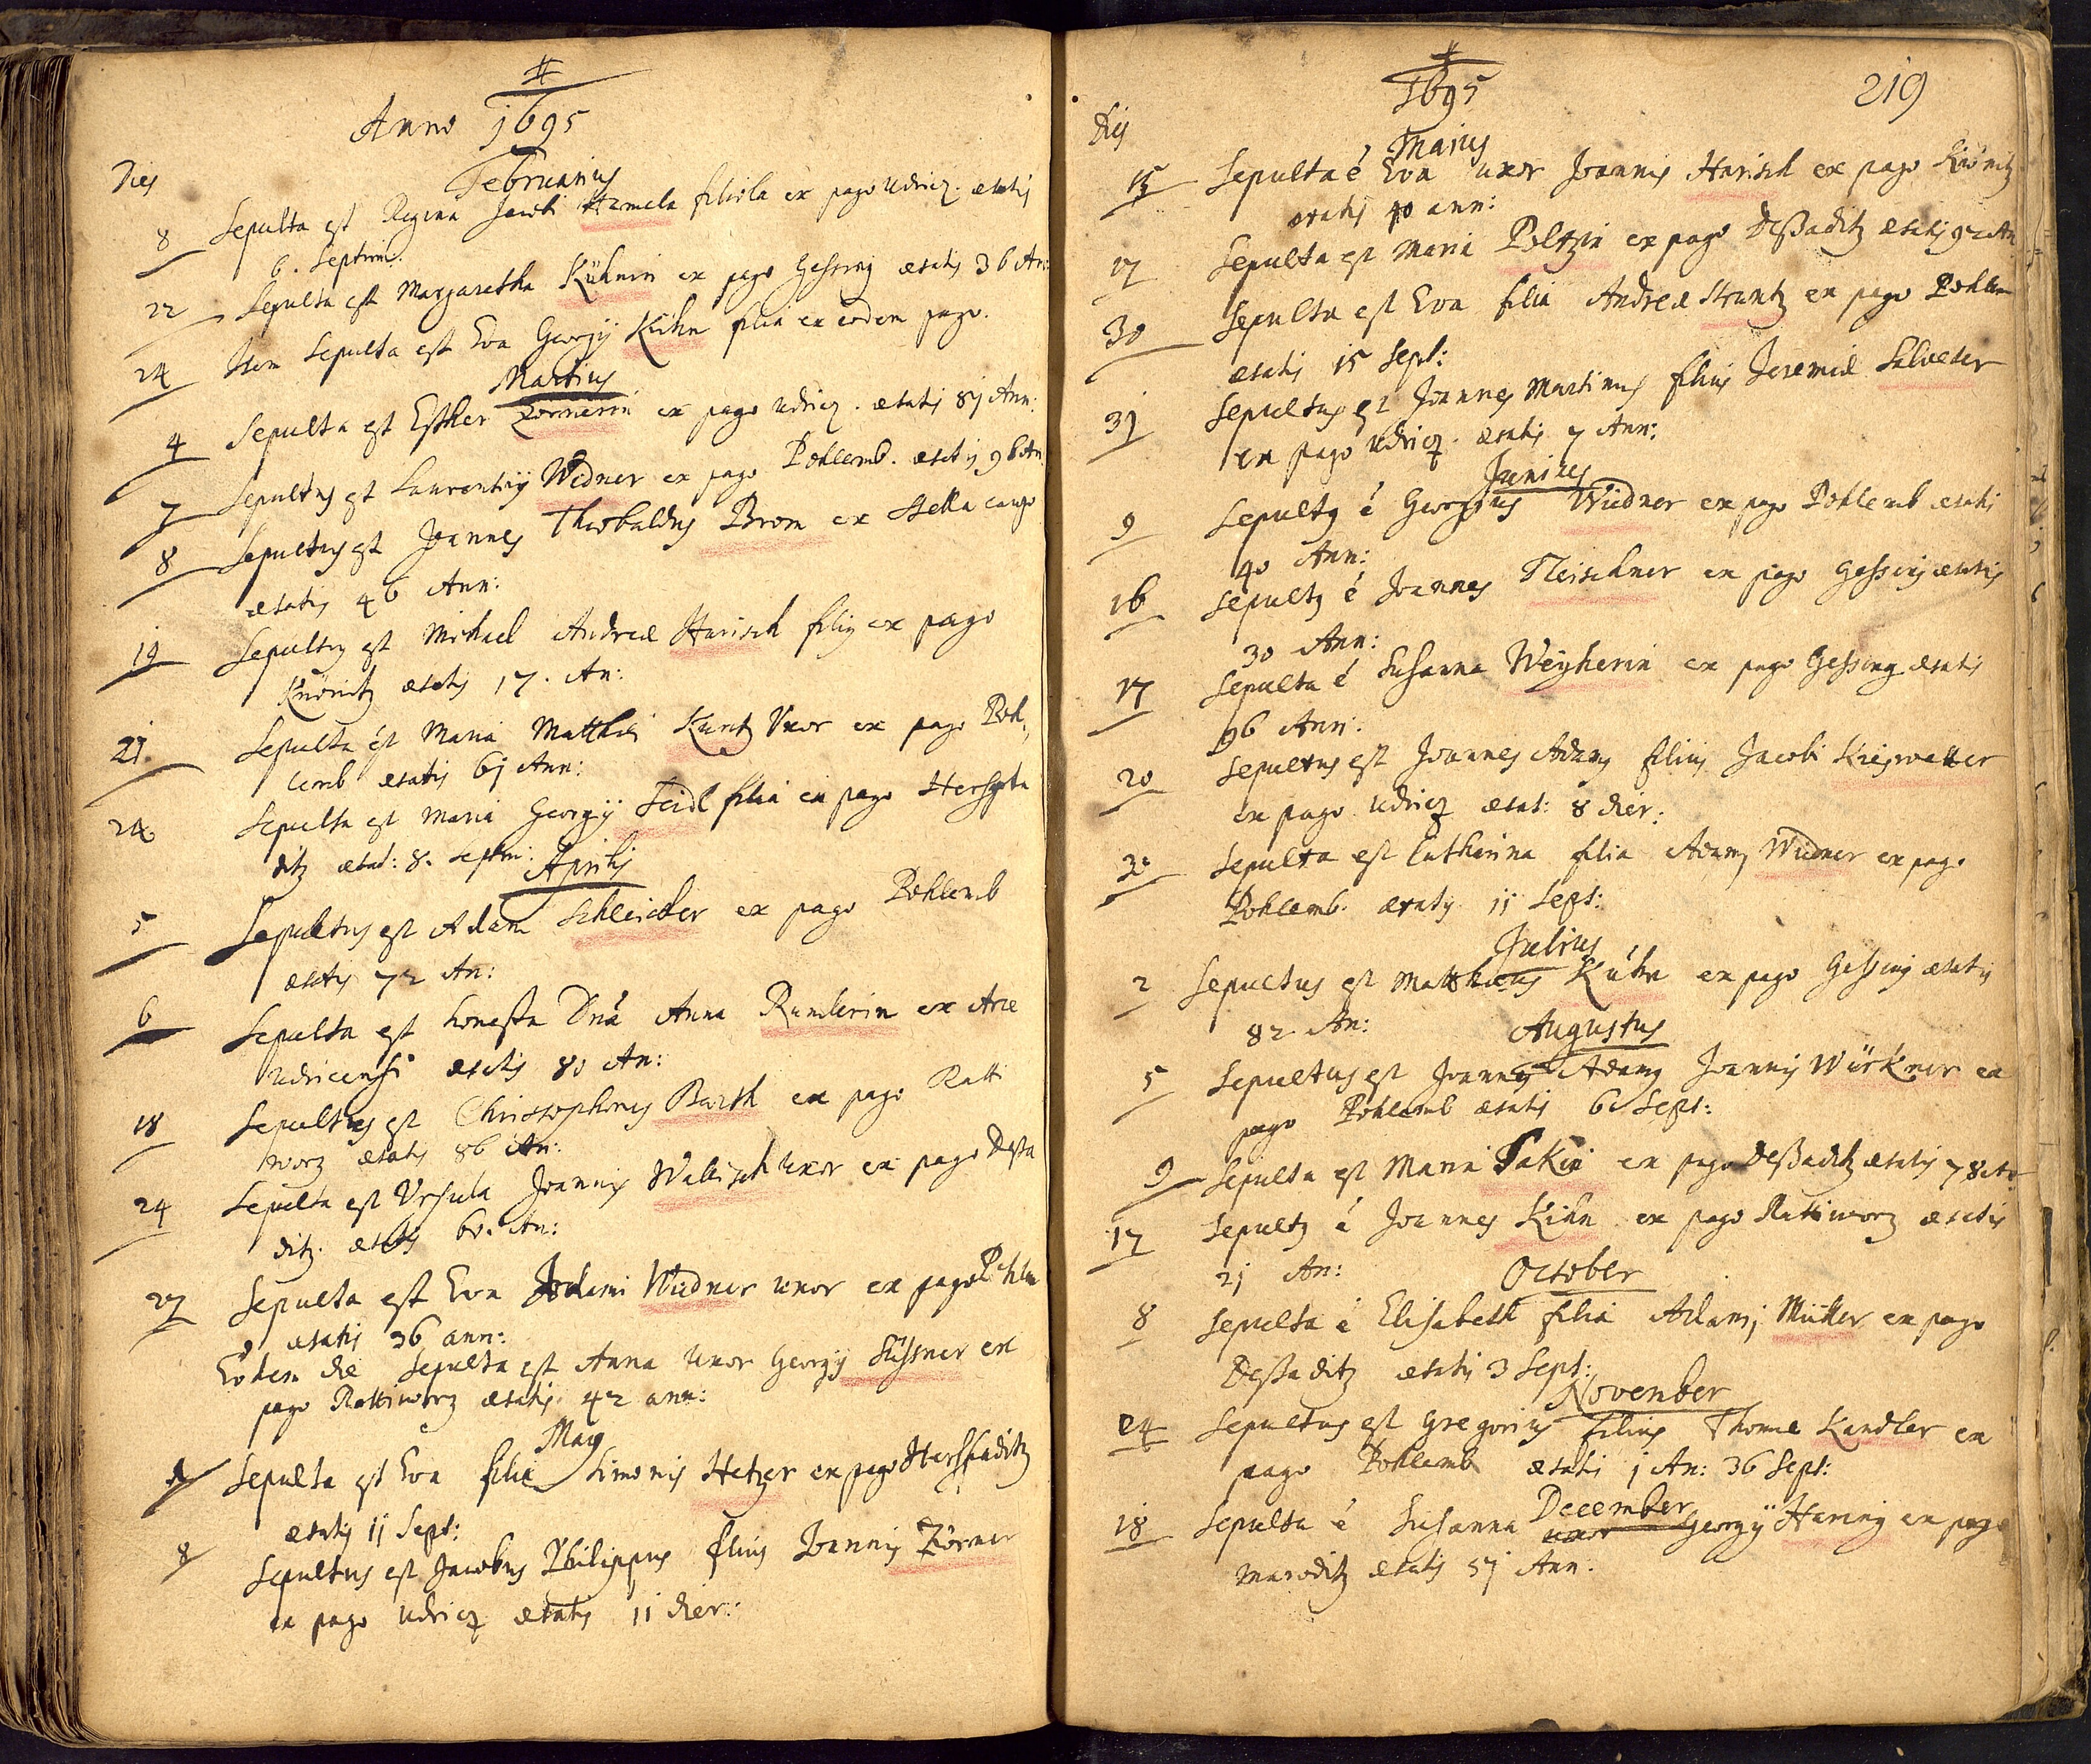 Anno 1695
Dies
Februarius
8 Sepulta est Regina Jacobi Hamela filiola ex pago Udricz. ætatis
6. Septim:
22 Sepulta est Margaretha Kühnin ex pago Gessing ætatis 36 An:
24 Item Sepulta est Eva Georgÿ Kühn filia ex eodem pago.
Martius
4 Sepulta est Esther Zörnerin ex pago Udricz. ætatis 81 Ann:
7 Sepultus est Laurentius Widner ex pago Pohlemb. ætatis 96 An.
8 Sepultus est Joannes Theobaldus Brom ex Stella
ætatis 46 Ann:
19 Sepultus est Michael Andreæ Harisch filius ex pago
Knönitz ætatis 17. An:
21. Sepulta est Maria Matthæi Kuntz Vxor ex pago Poh,
lemb ætatis 61 Ann:
24 Sepulta est Maria Georgÿ Seidl filia ex pago Herspa
ditz ætat: 8. Septim:
Aprilis
5 Sepultus est Adam Schleicher ex pago Pohlemb
ætatis 72 An:
6 Sepulta est honesta Dña Anna Rumlerin ex Arce
Udricensi ætatis 80 An:
18 Sepultus est Christophorus Barth ex pago Ratti
worz ætatis 86 An:
24 Sepulta est Ursula Joannis Wallisch uxor ex pago Dessa
ditz. ætatis 60. An:
27 Sepulta est Eva Adami Widner uxor ex pago Pohlem
ætatis 36 ann:
Eodem die Sepulta est Anna uxor Georgÿ Süssner ex
pago Rattiworz ætatis 42 ann:
May
Sepulta est Eva filia Simonis Hetzer ex pago Herspaditz
ætatis 11 Sept:
8 Sepultus est Jacobus Philippus filius Joannis Zörner
ex pago Udricz ætatis 11 dier:
1695
219
Dies
Majus
15 Sepulta é Eva uxor Joannis Harisch ex pago Knönitz
ætatis 40 ann:
17 Sepulta est Maria Poltzin ex pago Deßaditz ætatis 92 An
30 Sepulta est Eva filia Andreæ Strantz ex pago Pohlem
ætatis 15 Sept:
31 Sepultus est Joannes Martinus filius Jeremiæ Salveter
ex pago Udricz. ætatis 7 Ann:
Junius
9 Sepultus é Georgius Widner ex pago Pohlemb ætatis
40 Ann:
16 Sepultus é Joannes Fleischner ex pago Gessing ætatis
30 Ann:
17 Sepulta é Susanna Weÿherin ex pago Gessing ætatis
96 Ann:
20 Sepultus est Joannes Adamus filius Jacobi Kieswetter
ex pago Udricz ætat: 8 dier:
30 Sepulta est Catharina filia Adamj Widner ex pago
Pohlemb. ætatis 11 Sept:
Julius
2 Sepultus est Matthæus Kühn ex pago Gessing ætatis
82 An:
Augustus
5 Sepultus est Joannes Adamus Joannis Würkner ex
pago Pohlemb ætatis 6. Sept:
9 Sepulta est Maria Pakin ex pago Deßaditz ætatis 78 An
17 Sepultus é Joannes Kihn ex pago Rattiworz ætatis
21 An:
October
8 Sepulta é Elisabeth filia Adamj Müller ex pago
Deßaditz ætatis 3 Sept:
November
24 Sepultus est Gregorius filius Thomæ Kandler ex
pago Pohlemb ætatis 1 An: 36 Sept:
December
18 Sepulta é Susanna uxor Georgÿ Haring ex pago
Maroditz ætatis 51 Ann: